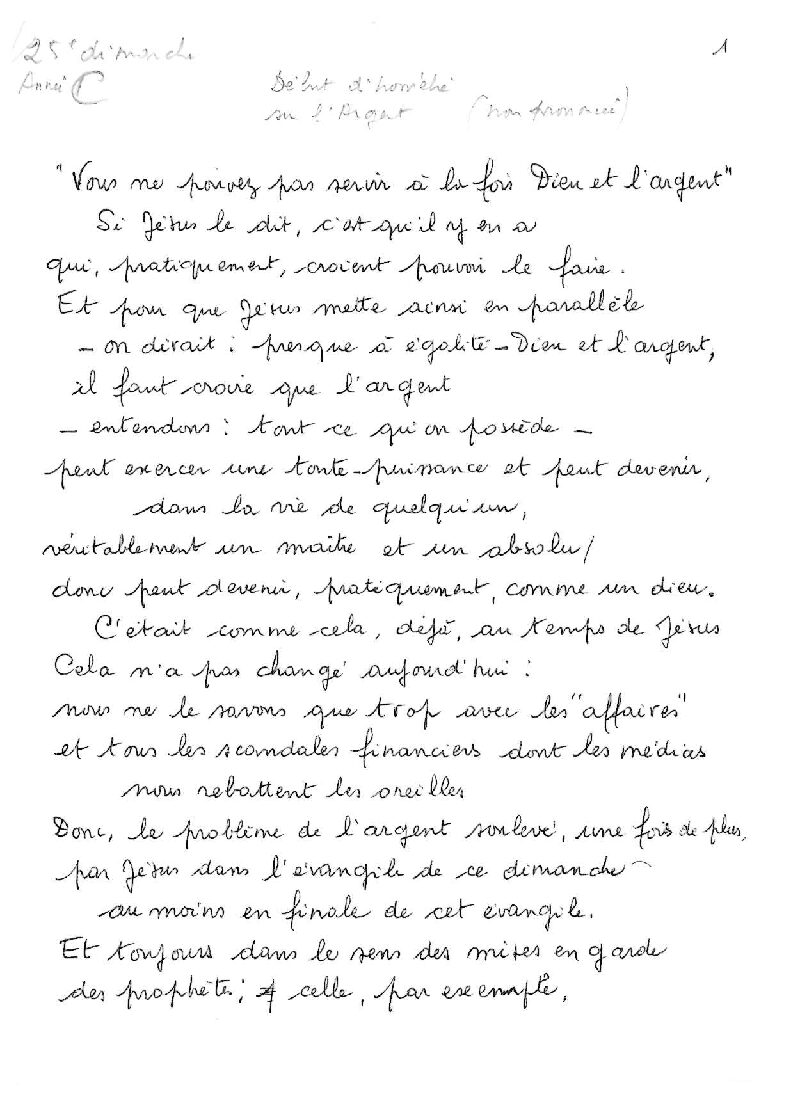 25e dimanche
1
Année C
Début d'homélie
sur l'Argent (non prononcé)
"Vous ne pouvez pas servir à la fois Dieu et l'argent"
Si Jésus le dit, c'est qu'il y en a
qui, pratiquement, croient pouvoir le faire.
Et pour que Jésus mette ainsi en parallèle
- on dirait : presque à égalité - Dieu et l'argent,
il faut croire que l'argent
- entendons : tout ce qu'on possède -
peut exercer une toute-puissance et peut devenir,
dans la vie de quelqu'un,
véritablement un maître et un absolu/
donc peut devenir, pratiquement, comme un dieu.
C'était comme cela, déjà, au temps de Jésus
Cela n'a pas changé aujourd'hui :
nous ne le savons que trop avec les "affaires"
et tous les scandales financiers dont les médias
nous rebattent les oreilles
Donc, le problème de l'argent soulevé, une fois de plus,
par Jésus dans l'évangile de ce dimanche
au moins en finale de cet évangile.
Et toujours dans le sens des mises en garde
des prophètes ; celle, par exemple,